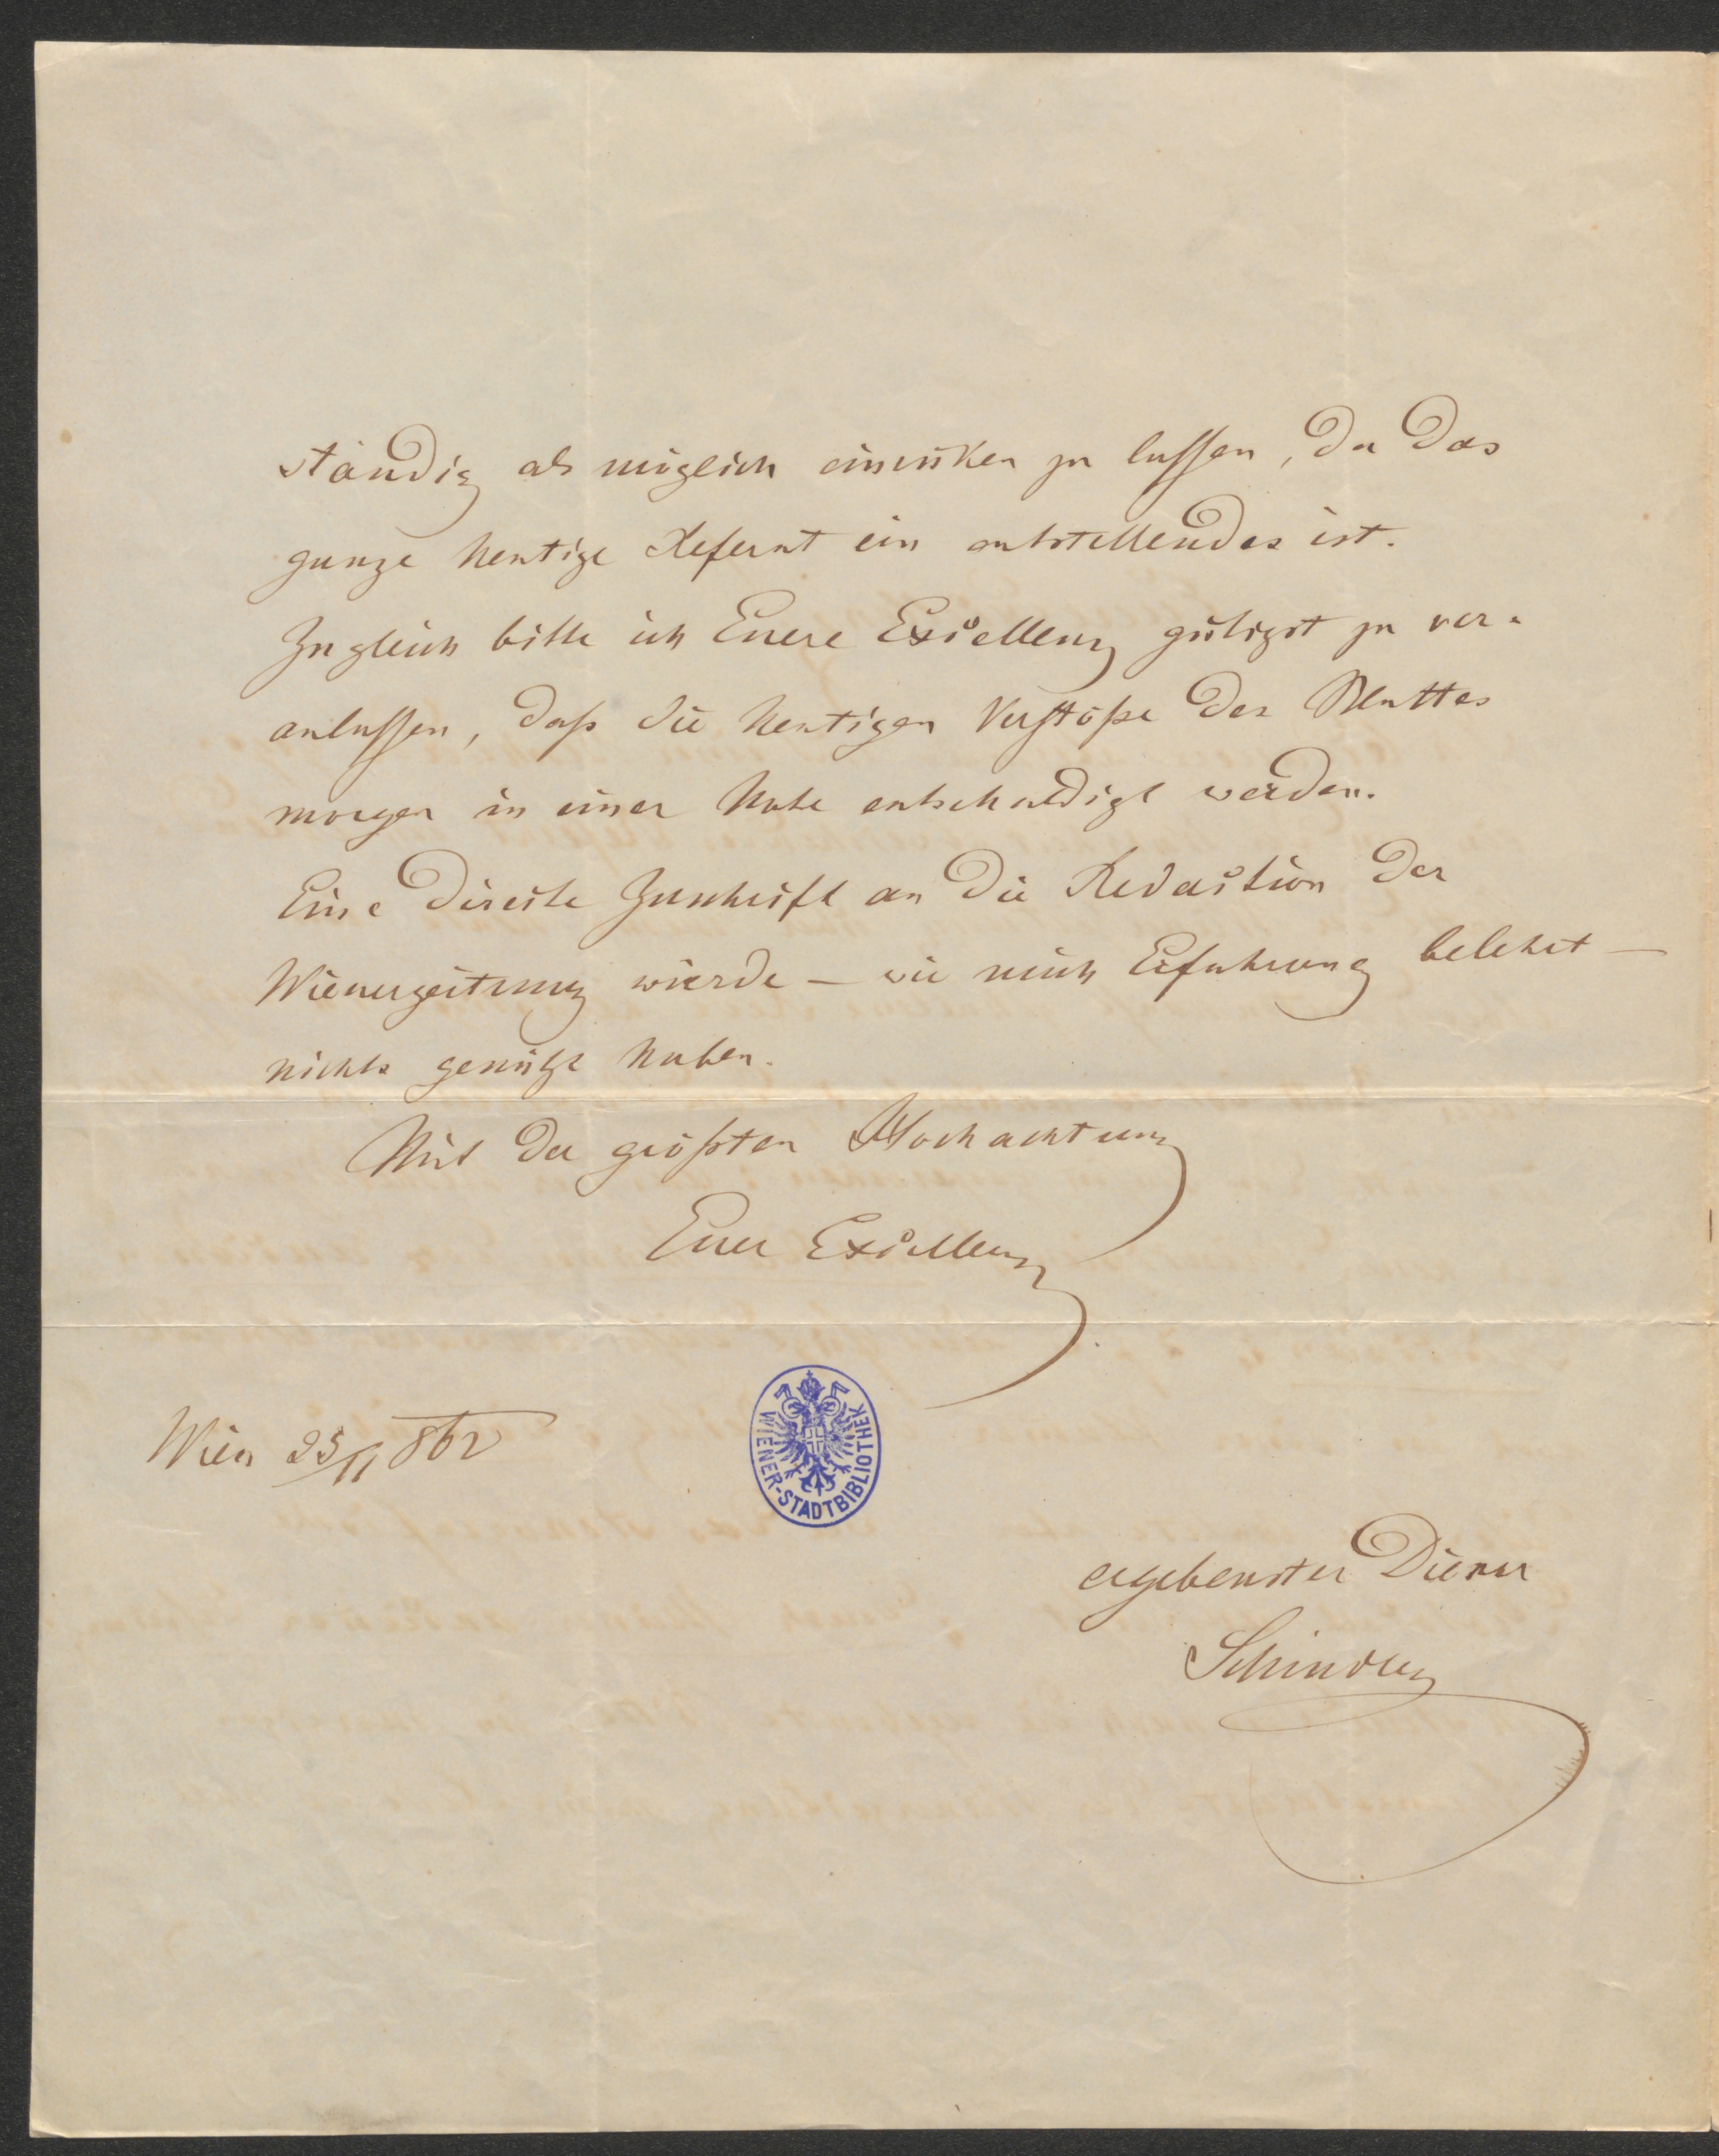 ständig als möglich einrücken zu lassen, da das
ganze heutige Referat ein entstellendes ist.
Zugleich bitte ich Euere Excellenz gütigst zu ver-
anlassen, daß die heutigen Verstöße des Blattes
morgen in einer Note entschuldigt werden.
Eine directe Zuschrift an die Redaction der
Wienerzeitung würde – wie mich Erfahrung belehrt –
nichts genützt haben.
Mit der größten Hochachtung
Euer Excellenz
Wien 25/11 862
WIENER-STADTBIBLIOTHEK
ergebenster Diener
Schindler